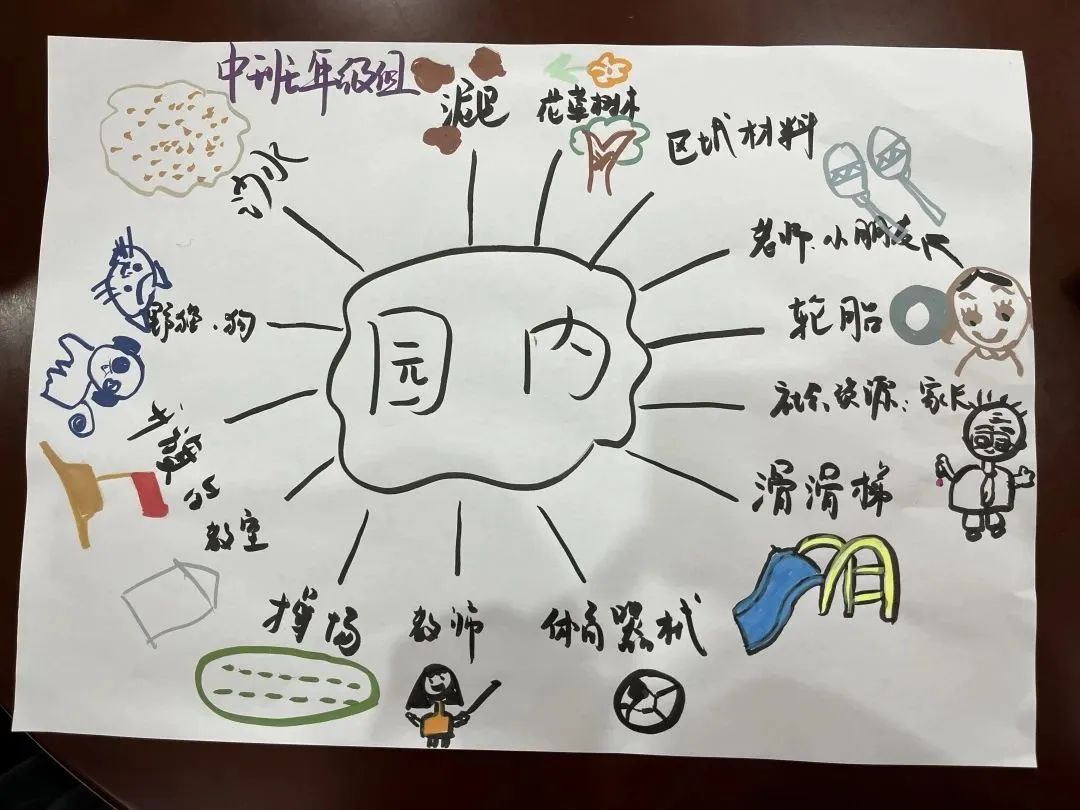 中班年级组
泥巴
花草树木
区域材料
沙水
老师、小朋友
野猫、狗
轮胎
园内
社会资源：家长
滑滑梯
教室
操场
教师
体育器械